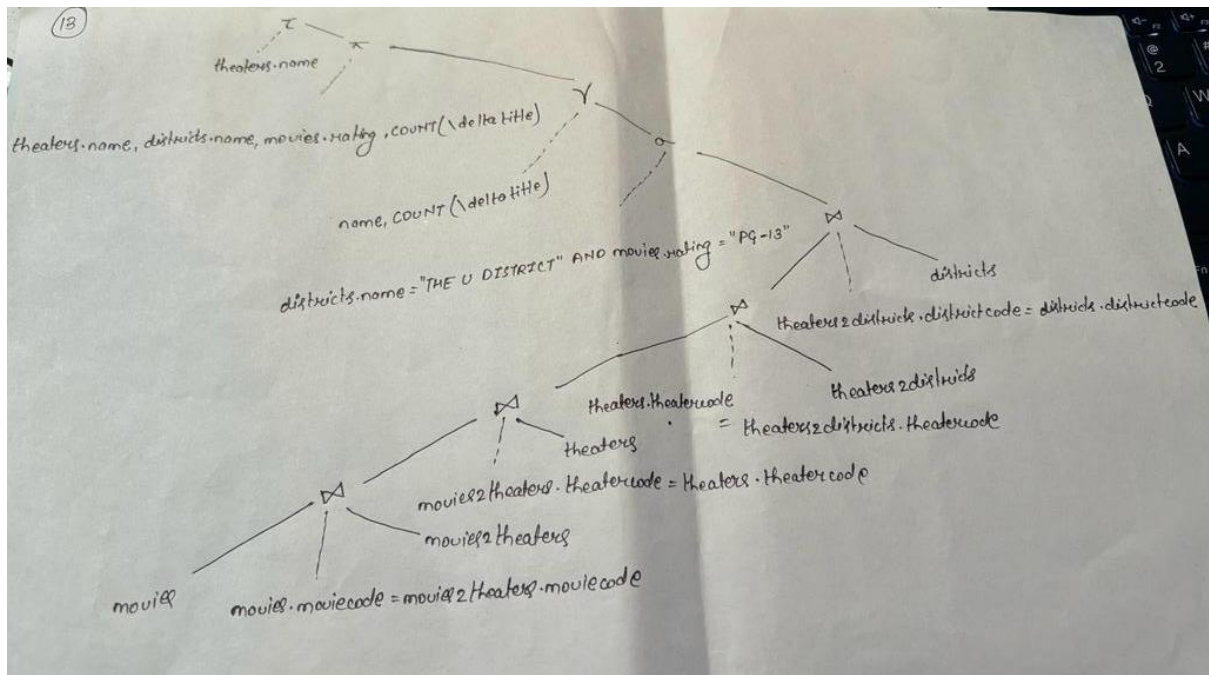 13
τ
π
theaters.name
γ
theaters.name, districts.name, movies.rating, COUNT(\delta title)
σ
name, COUNT(\delta title)
⋈
districts.name = "THE U DISTRICT" AND movies.rating = "PG-13"
districts
⋈
theaters2districts.districtcode = districts.districtcode
theaters2districts
⋈
theaters.theatercode
= theaters2districts.theatercode
theaters
movies2theaters.theatercode = theaters.theatercode
⋈
movies2theaters
movies
movies.moviecode = movies2theaters.moviecode
@
2
W
A